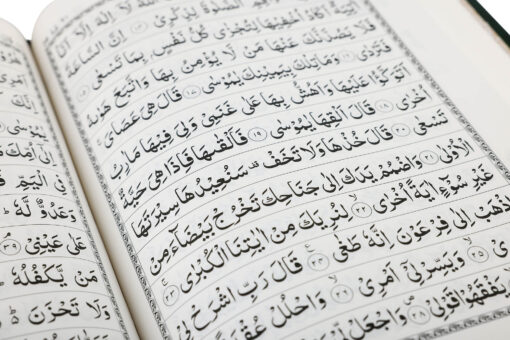 الصَّلٰوةَ لِذِكْرِيْ ۝١٤ اِنَّ السَّاعَةَ
اٰتِيَةٌ اَكَادُ اُخْفِيْهَا لِتُجْزٰى كُلُّ نَفْسٍۭ بِمَا تَسْعٰى ۝١٥
فَلَا يَصُدَّنَّكَ عَنْهَا مَنْ لَّا يُؤْمِنُ بِهَا وَاتَّبَعَ هَوٰىهُ
فَتَرْدٰى ۝١٦ وَمَا تِلْكَ بِيَمِيْنِكَ يٰمُوْسٰى ۝١٧ قَالَ هِيَ عَصَايَ ۚ
اَتَوَكَّؤُا عَلَيْهَا وَاَهُشُّ بِهَا عَلٰى غَنَمِيْ وَلِيَ فِيْهَا مَاٰرِبُ
اُخْرٰى ۝١٨ قَالَ اَلْقِهَا يٰمُوْسٰى ۝١٩ فَاَلْقٰىهَا فَاِذَا هِيَ حَيَّةٌ
تَسْعٰى ۝٢٠ قَالَ خُذْهَا وَلَا تَخَفْ ۫ سَنُعِيْدُهَا سِيْرَتَهَا
الْاُوْلٰى ۝٢١ وَاضْمُمْ يَدَكَ اِلٰى جَنَاحِكَ تَخْرُجْ بَيْضَآءَ مِنْ
غَيْرِ سُوْٓءٍ اٰيَةً اُخْرٰى ۝٢٢ لِنُرِيَكَ مِنْ اٰيٰتِنَا الْكُبْرٰى ۝٢٣
اِذْهَبْ اِلٰى فِرْعَوْنَ اِنَّهٗ طَغٰى ۝٢٤ قَالَ رَبِّ اشْرَحْ لِيْ
۝٢٥ وَيَسِّرْ لِيْٓ اَمْرِيْ ۝٢٦ وَاحْلُلْ
يَفْقَهُوْا قَوْلِيْ ۝٢٨ وَاجْعَلْ
اِنَّكَ
يٰمُوْسٰى
اِلٰٓى اُمِّكَ
فِي الْيَمِّ
وَعَدُوٌّ لَّهٗ
عَلٰى عَيْنِيْ ۝٣٩
مَنْ يَّكْفُلُهٗ
وَلَا تَحْزَنَ